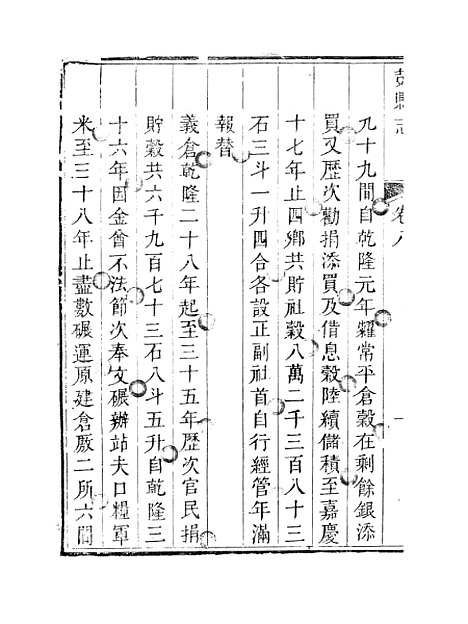 彭縣志
卷八
九十九間自乾隆元年糶常平倉穀在剩餘銀添
買又歷次勸捐添買及借息穀陸續儲積至嘉慶
十七年止四鄉共貯社穀八萬二千三百八十三
石三斗一升四合各設正副社首自行經管年滿
報替
義倉乾隆二十八年起至三十五年歷次官民捐
貯穀共六千九百七十三石八斗五升自乾隆三
十六年因金酋不法節次奉文碾辦站夫口糧軍
米至三十八年止盡數碾運原建倉廒二所六間